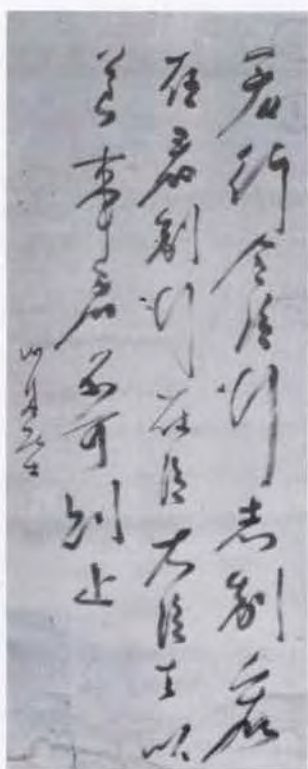 君行令臣行志制
在君制行在臣大臣者以
道事君不可則止